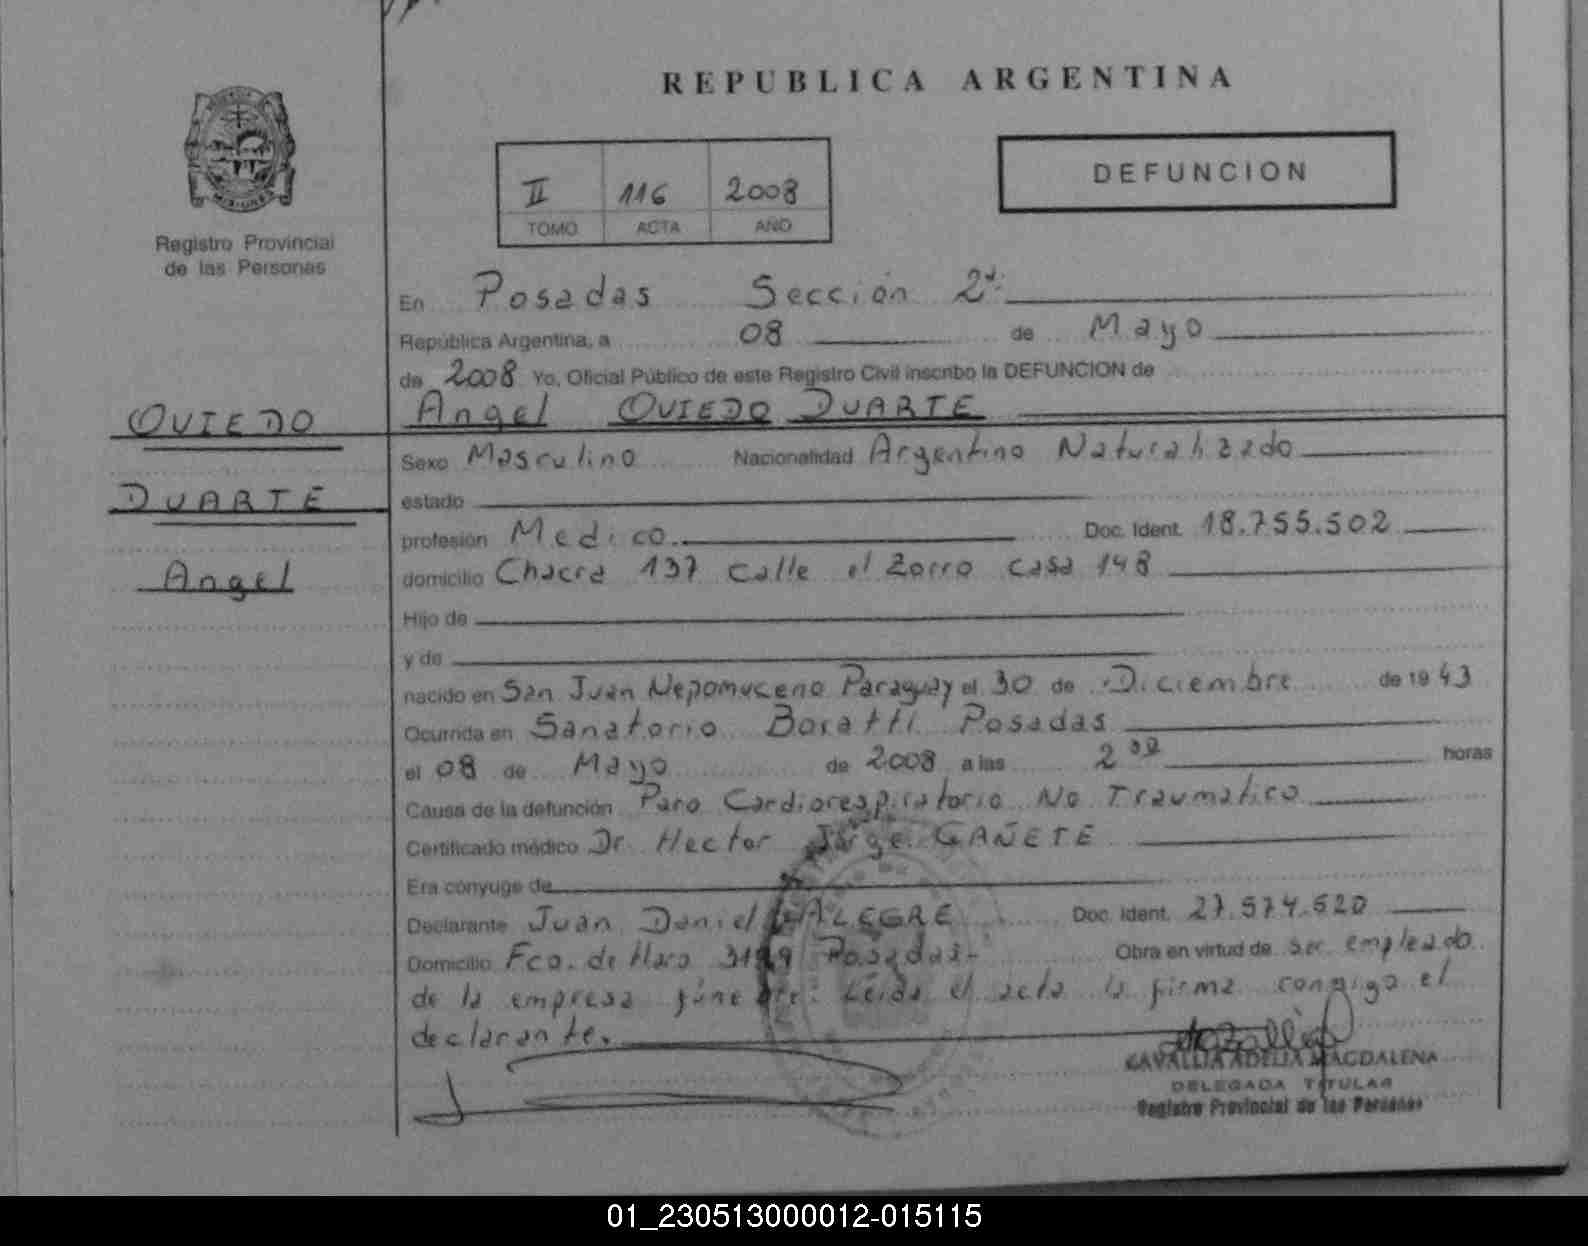 REPUBLICA ARGENTINA
Registro Provincial
de las Personas
II 116 2008
TOMO ACTA AÑO
DEFUNCION
En Posadas Sección 2ª
República Argentina, a 08 de Mayo
de 2008 Yo, Oficial Público de este Registro Civil inscribo la DEFUNCION de
Angel OVIEDO DUARTE
OVIEDO
DUARTE
Angel
Sexo Masculino Nacionalidad Argentino Naturalizado
estado
profesión Medico Doc. Ident. 18.755.502
domicilio Chacra 137 calle el Zorro casa 148
Hijo de
y de
nacido en San Juan Nepomuceno Paraguay el 30 de Diciembre de 1943
Ocurrida en Sanatorio Boratti Posadas
el 08 de Mayo de 2008 a las 2 horas
Causa de la defunción Paro Cardiorespiratorio No Traumatico
Certificado médico Dr. Hector Jorge CAÑETE
Era cónyuge de
Declarante Juan Daniel ALEGRE Doc. Ident. 27.574.520
Domicilio Fco. de Haro Posadas- Obra en virtud de ser empleado
de la empresa fúnebre. Leída el acta la firma conmigo el
declarante.
CAVALLIA ADELIA MAGDALENA
DELEGADA TITULAR
Registro Provincial de las Personas
01_230513000012-015115